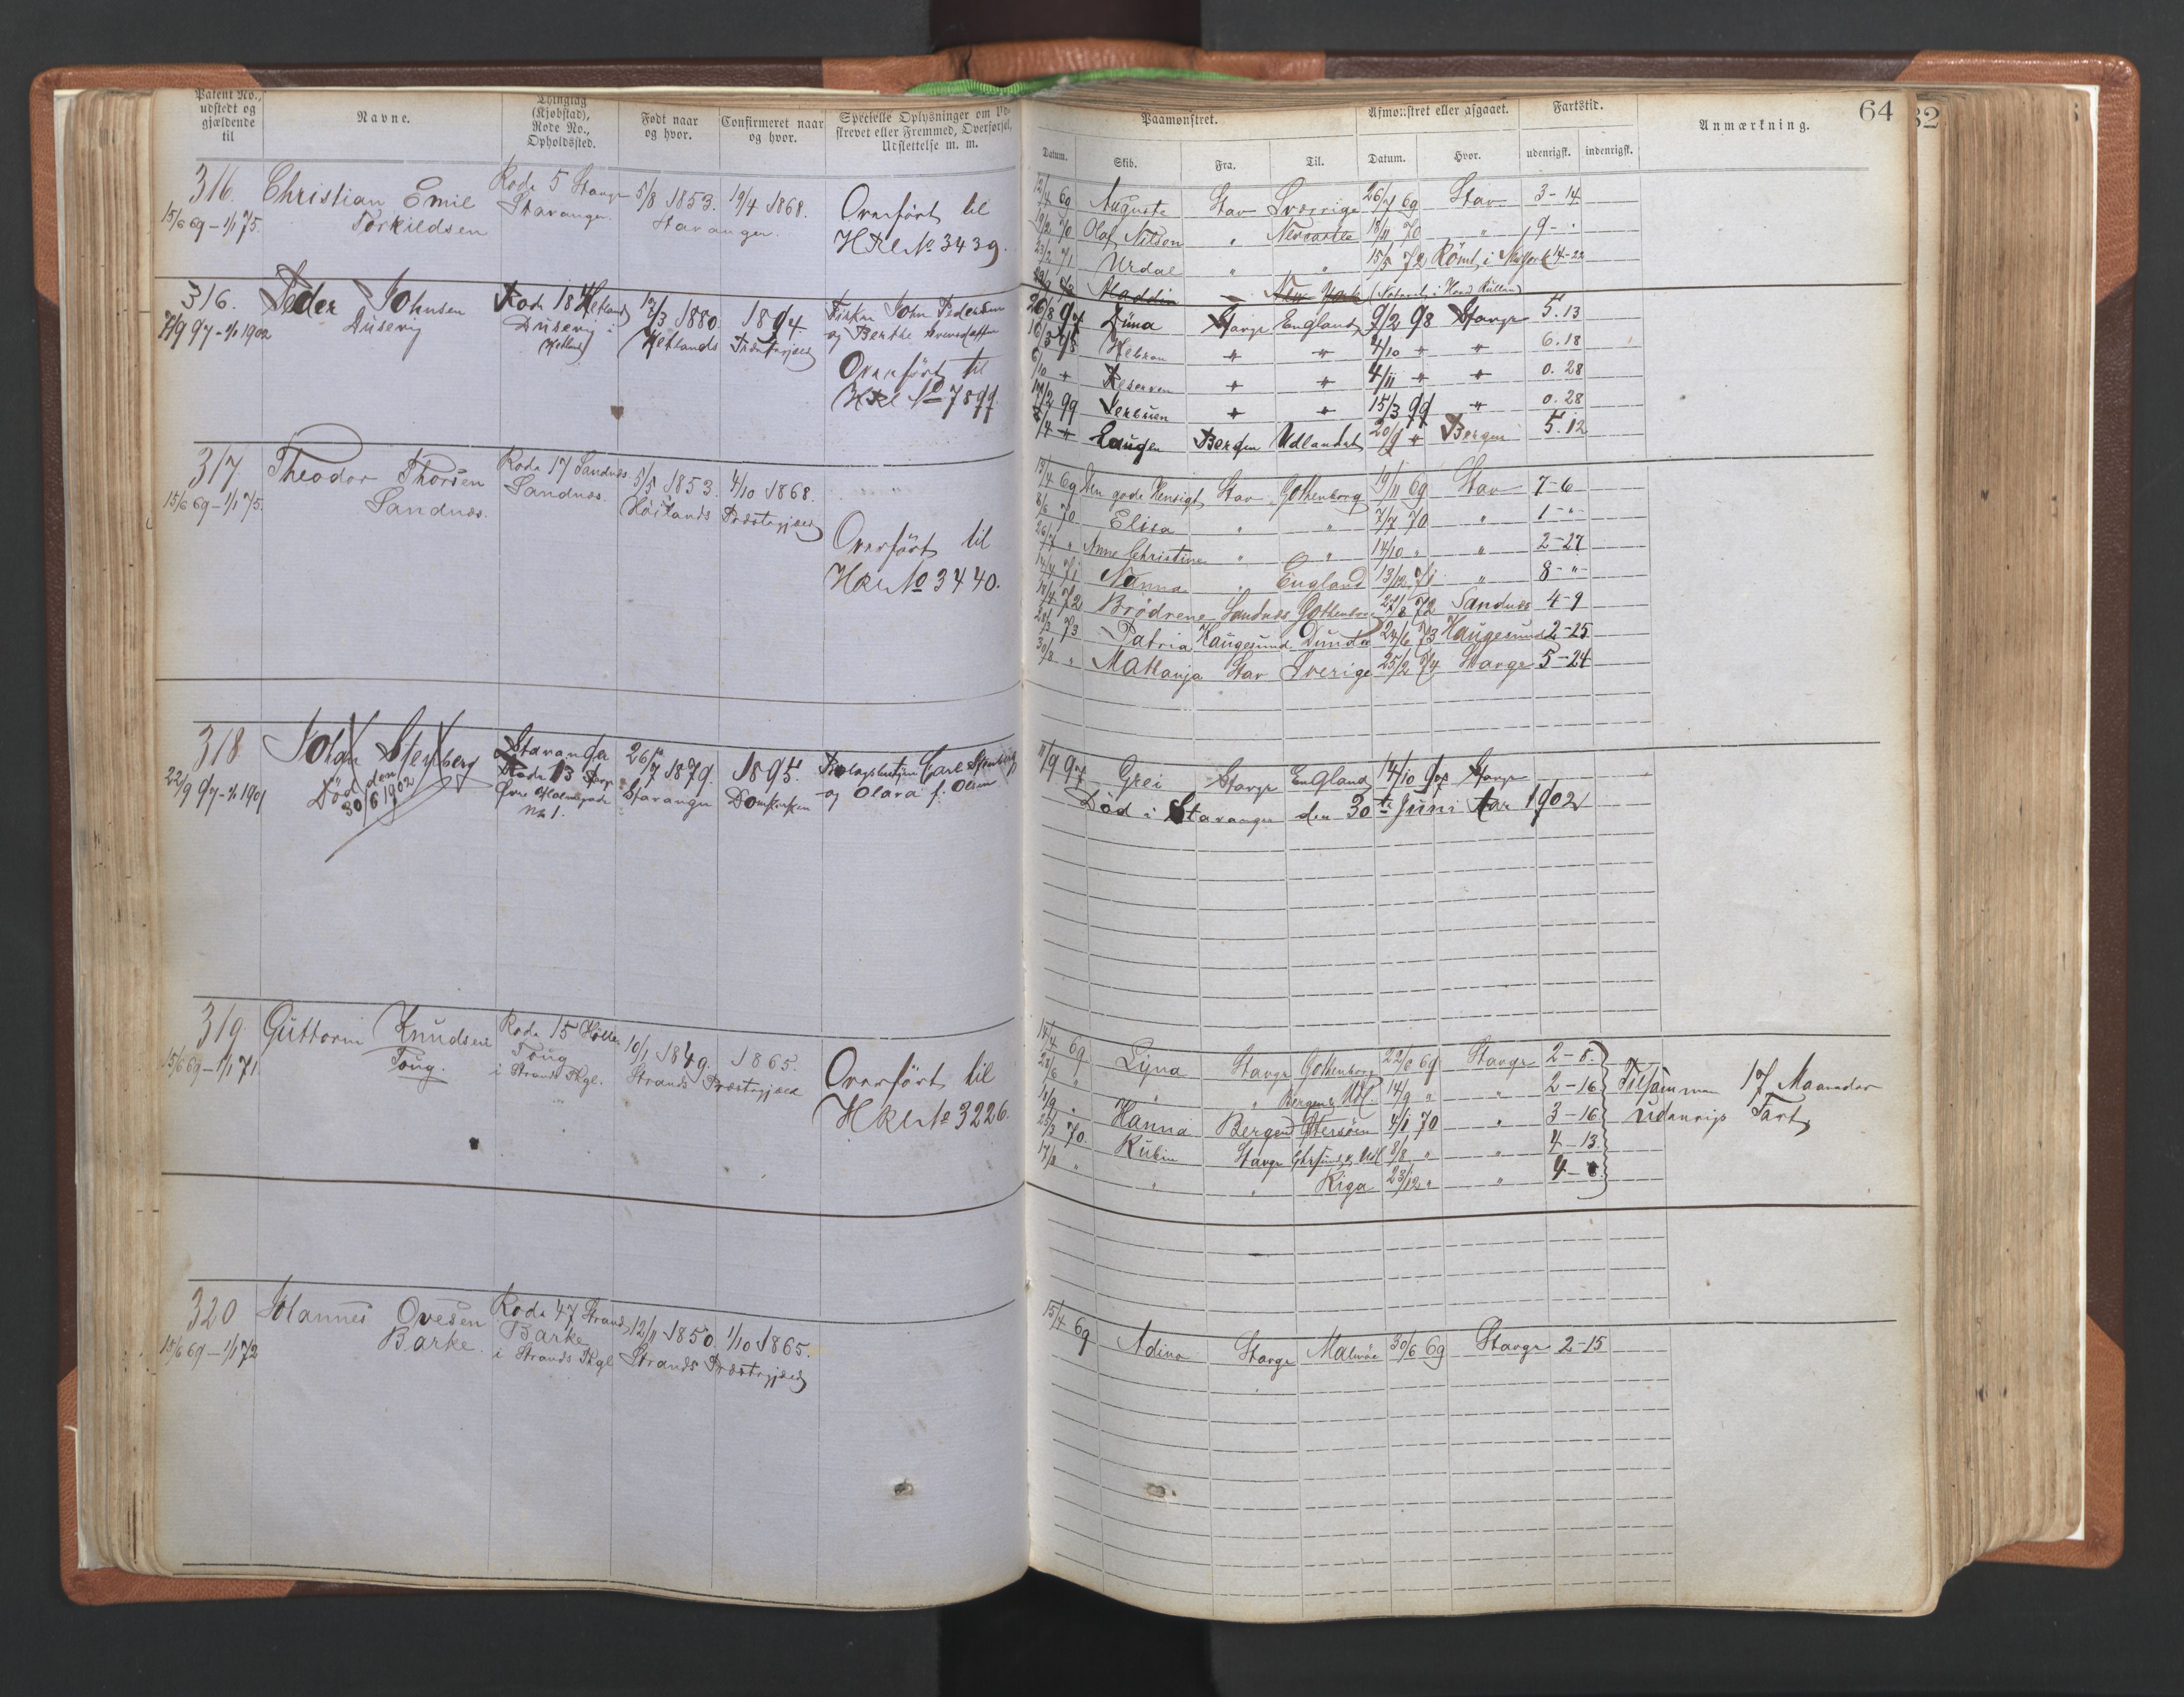 Patent No., udstedt og gjældende til
Navne.
Thinglag (Kjøbstad), Rode No., Opholdssted.
Født naar og hvor.
Confirmeret naar og hvor.
Specielle Oplysninger om Ud-
skrevet eller Fremmed, Overførsel,
Udslettelse m. m.
316. Christian Emil Rode 5 Stavgr 5/8 1853. 19/4 1868.
15/6 69 – 1/1 75. Torkildsen Stavanger. Stavanger.
Overført til
HRl No 3439.
316. Peder Johnsen Rode 18 Hetland 1880. 1894. Fisker John Pedersen
7/9 97 – 1/1 1902 Dusevig Dusevig i Hetlands Præstegjæld og Berthe
Hetland
Overført til
HRl No 7899.
317 Theodor Thorsen Rode 17 Sandnæs 5/5 1853. 4/10 1868.
15/6 69 – 1/1 75. Sandnæs. Sandnæs. Høilands Præstegjæld
Overført til
HRl No 3440.
318 Johan Stenberg Stavanger 26/7 1879. 1895. Carl Stenberg
22/9 97 – 1/1 1901 Død den Rode 13 Stavgr Stavanger Domkirken og Olava f. Olsen
30/6 1902 Øvre Holmegade
No 1.
319. Guttorm Knudsen Rode 15 Holle 10/1 1849. 1865.
15/6 69 – 1/1 71. Toug. Toug Strands Præstegjæld
i Strands Thgl.
Overført til
HRl No 3226.
320 Johannes Ovesen Rode 47 Strand 12/11 1850. 1/10 1865.
15/6 69 – 1/1 72 Barke. Barke Strands Præstegjæld
i Strands Thgl
Paamønstret.
Afmønstret eller afgaaet.
Fartstid.
Anmærkning.
64
32
Datum. Skib. Fra. Til. Datum. Hvor. udenrigsk. indenrigsk.
12/4 69 Auguste Stav Sverrige 26/7 69 Stav 3 – 14
70 Olaf Nilsen " Newcastle 18/11 70 " 9 –
71 Urdal " " 15/5 72 Rømt i 14–22
Aladdin New York
26/8 97 Düna Stavgr England 9/2 98 Stavgr 5. 13
16/3 98 Hebron " " 4/10 " " 6. 18
6/10 " Reserven " " 4/11 " " 0. 28
17/2 99 " " 15/3 99 " 0. 28
/4 " Laugen Bergen Udlandet 20/9 " Bergen 5. 12
13/4 69 Den gode Hensigt Stav Gothenborg 19/11 69 Stav 7–6
8/6 70 Elisa " " 7/7 70 " 1 – "
26/7 " Anne Christine " " 14/10 " " 2–27
14/4 71 Nanna " England 13/12 71 " 8 – "
18/4 72 Brødrene Sandnæs Gothenborg 27/8 72 Sandnæs 4–9
28/3 73 Patria Haugesund 24/6 73 Haugesund 2–25
30/8 " Stav Sverige 25/2 74 Stavgr 5–24
11/9 97 Grei Stavgr England 14/10 97 Stavgr
Død i Stavanger den 30te Juni Aar 1902
14/4 69 Lyna Stavgr Gothenborg 22/6 69 Stavgr 2–8.
28/6 " " " Bergen & Udl. 14/9 " " 2–16 Tilsammen 17 Maaneder
18/9 " Hanna Bergen 4/1 70 " 3–16 udenrigs Fart
25/3 70. Rubin Stavgr 8/8 " " 4–13
17/8 " " " Riga 23/12 " " 4–
15/4 69 Adina Stavgr Malmöe 30/6 69 Stavgr 2–15